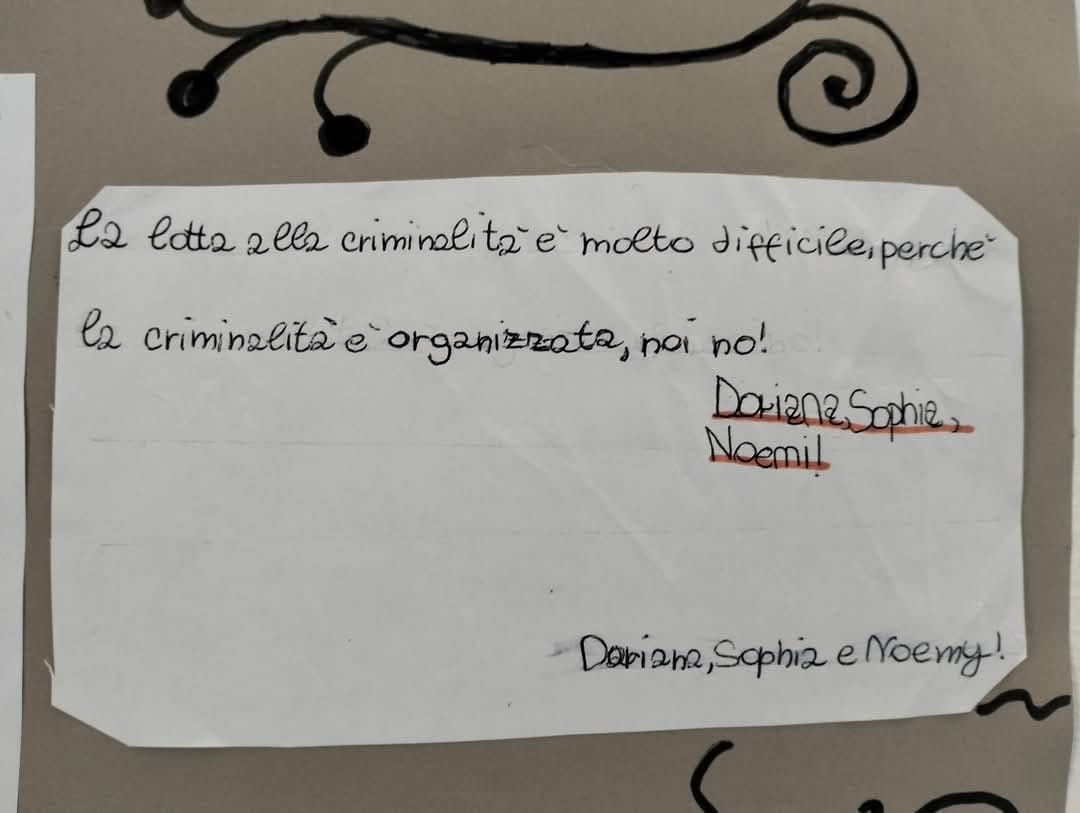 La lotta alla criminalità è molto difficile, perchè
la criminalità è organizzata, noi no!
Dariana, Sophia,
Noemi!
Dariana, Sophia e Noemy!